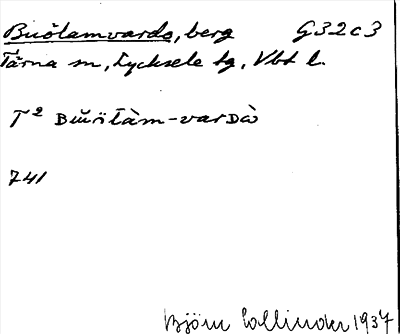 Buötamvardo, berg G32c3
Tärna sn, Lycksele lg, Vbt l.
T² Bŭöità̄m-varDà̄
741
Björn Collinder 1937